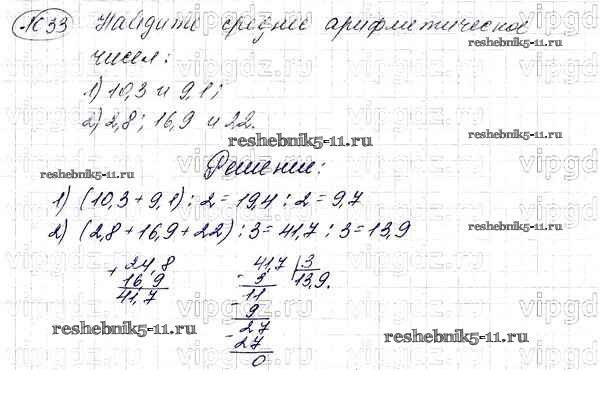 № 33 Найдите среднее арифметическое
чисел:
1) 10,3 и 9,1;
2) 2,8; 16,9 и 22.
Решение:
1) (10,3 + 9,1) : 2 = 19,4 : 2 = 9,7
2) (2,8 + 16,9 + 22) : 3 = 41,7 : 3 = 13,9
+ 24,8
16,9
41,7
- 41,7 | 3
3 13,9.
11
- 9
- 27
27
0
reshebnik5-11.ru
reshebnik5-11.ru
reshebnik5-11.ru
reshebnik5-11.ru
reshebnik5-11.ru
reshebnik5-11.ru
vipgdz.ru